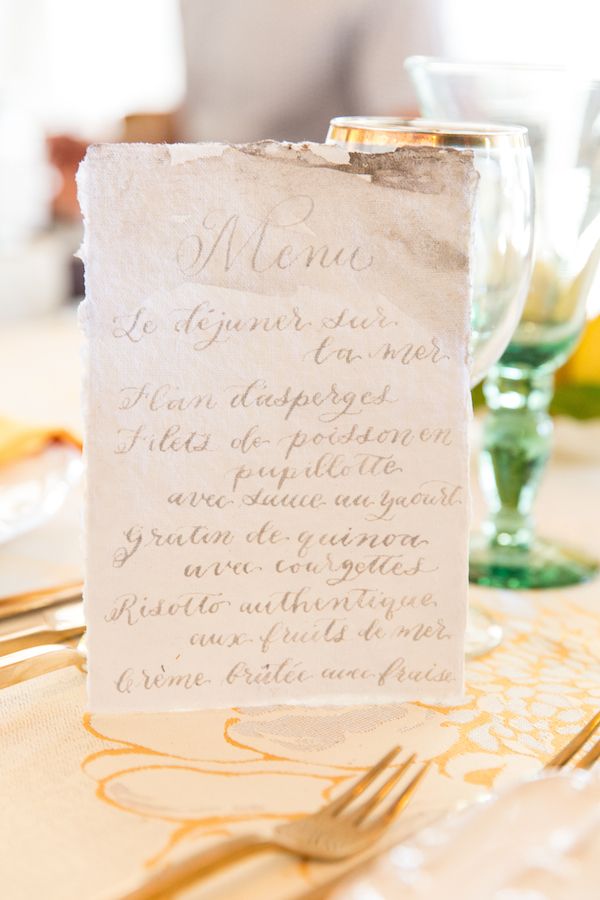 Menu
Le déjuner sur
la mer
Flan d'asperges
Filets de poisson en
pupillotte
avec sauce au yaourt
Gratin de quinoa
avec courgettes
Risotto authentique
aux fruits de mer
Crème brûlée avec fraise